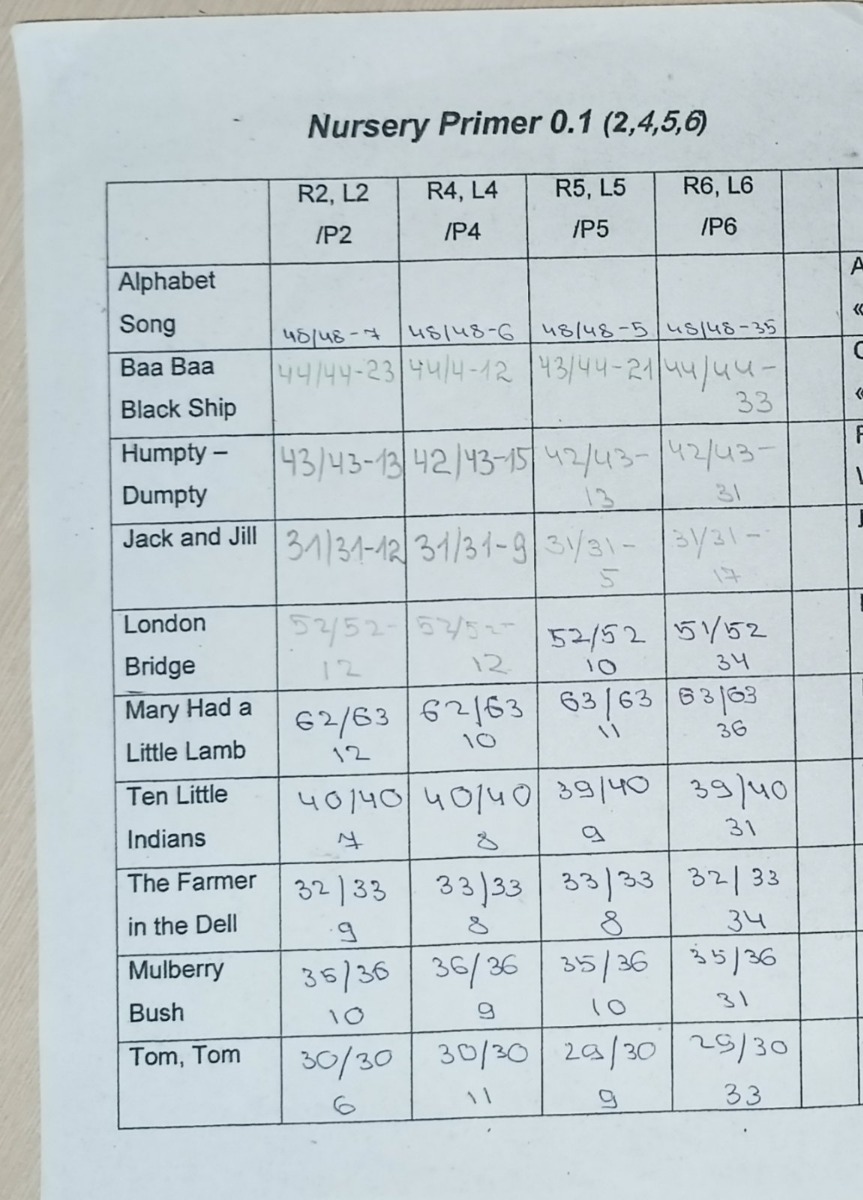 Nursery Primer 0.1 (2,4,5,6)
R2, L2 R4, L4 R5, L5 R6, L6
/P2 /P4 /P5 /P6
Alphabet
Song 48/48-7 48/48-6 48/48-5 48/48-35
Baa Baa 44/44-23 44/4-12 43/44-21 44/44-
Black Ship 33
Humpty – 43/43-13 42/43-15 42/43- 42/43-
Dumpty 13 31
Jack and Jill 31/31-12 31/31-9 31/31- 31/31-
5 17
London 52/52- 52/52- 52/52 51/52
Bridge 12 12 10 34
Mary Had a 62/63 62/63 63/63 63/63
Little Lamb 12 10 11 36
Ten Little 40/40 40/40 39/40 39/40
Indians 7 8 9 31
The Farmer 32/33 33/33 33/33 32/33
in the Dell 9 8 8 34
Mulberry 35/36 36/36 35/36 35/36
Bush 10 9 10 31
Tom, Tom 30/30 30/30 29/30 29/30
6 11 9 33